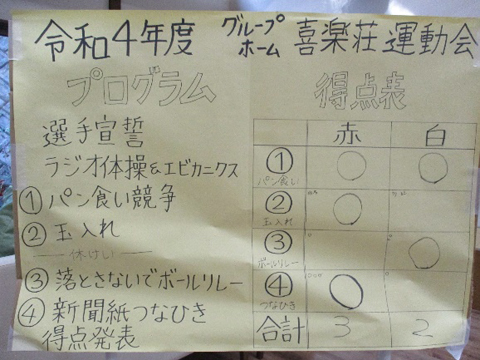 令和4年度 グループホーム 喜楽荘 運動会
プログラム
選手宣誓
ラジオ体操&エビカニクス
① パン食い競争
② 玉入れ
休けい
③ 落とさないでボールリレー
④ 新聞紙つなひき
得点発表
得点表
赤 白
① パン食い ○ ○
② 玉入れ ○
③ ボールリレー ○
④ つなひき ○
合計 3 2